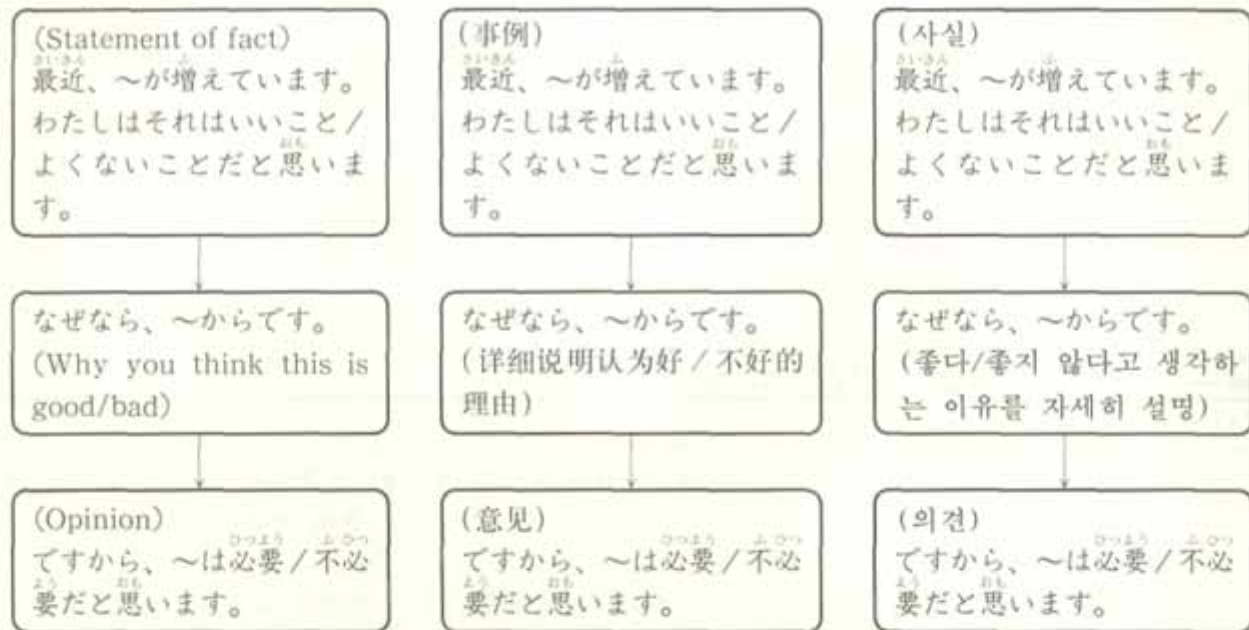 (Statement of fact)
最近、〜が増えています。
わたしはそれはいいこと/
よくないことだと思いま
す。
なぜなら、〜からです。
(Why you think this is
good/bad)
(Opinion)
ですから、〜は必要/不必
要だと思います。
(事例)
最近、〜が増えています。
わたしはそれはいいこと/
よくないことだと思いま
す。
なぜなら、〜からです。
(详细说明认为好/不好的
理由)
(意见)
ですから、〜は必要/不必
要だと思います。
(사실)
最近、〜が増えています。
わたしはそれはいいこと/
よくないことだと思いま
す。
なぜなら、〜からです。
(좋다/좋지 않다고 생각하
는 이유를 자세히 설명)
(의견)
ですから、〜は必要/不必
要だと思います。